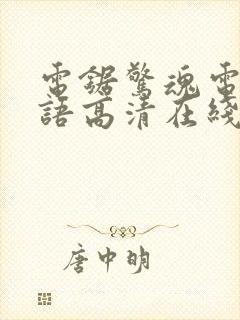 電鋸驚魂電
語高清在綫
唐中明